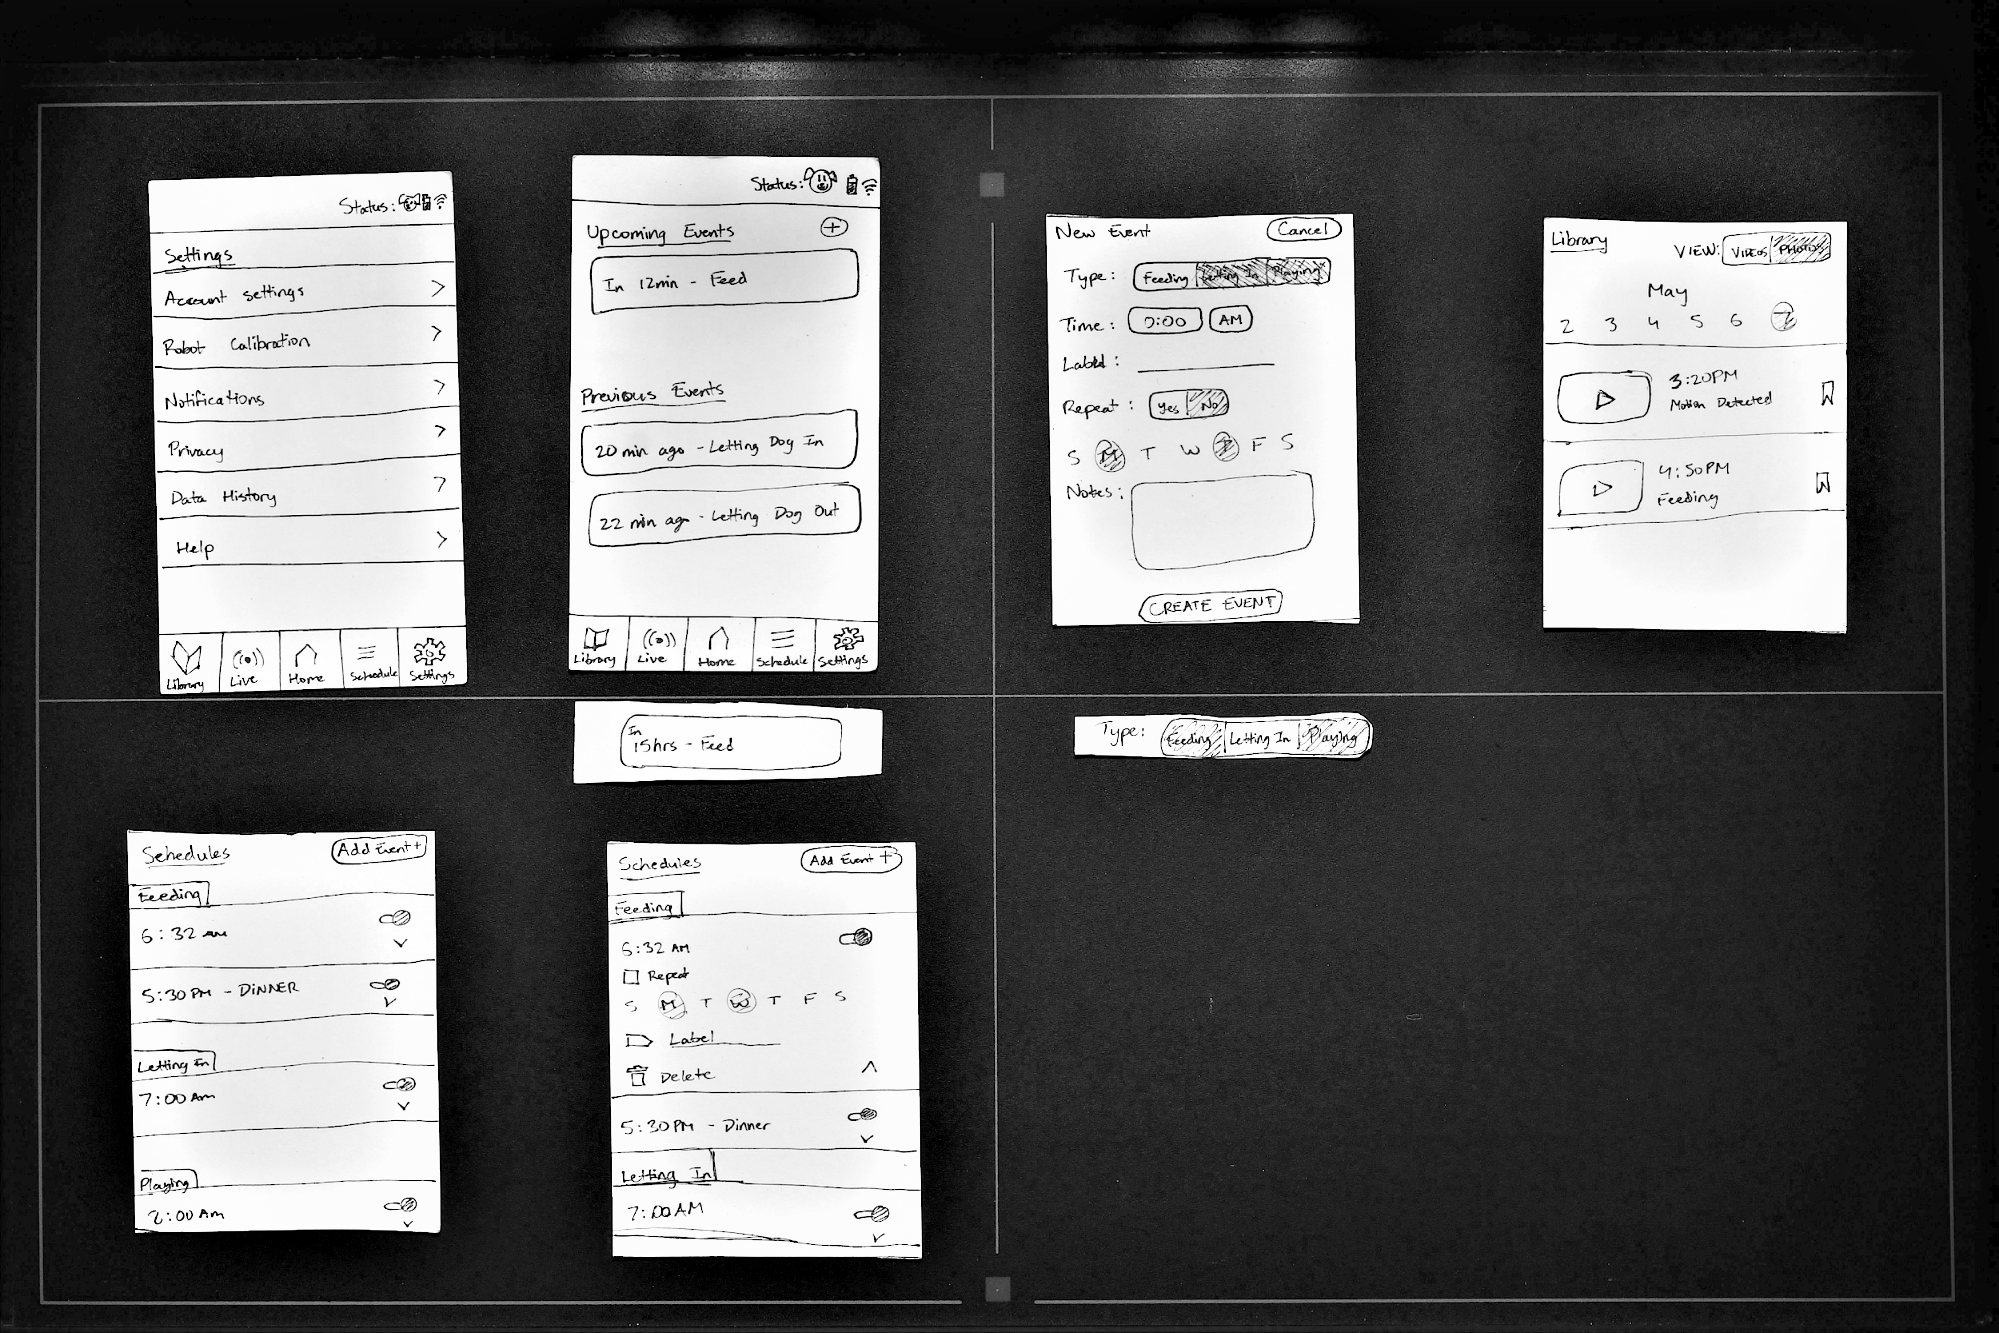 Status:
Settings
Account settings
Robot Calibration
Notifications
Privacy
Data History
Help
Library
Live
Home
Schedule
Settings
Status:
Upcoming Events +
In 12min - Feed
Previous Events
20 min ago - Letting Dog In
22 min ago - Letting Dog Out
Library
Live
Home
Schedule
Settings
New Event Cancel
Type: Feeding Letting In Playing
Time: AM
Label:
Repeat: Yes No
S M T W T F S
Notes:
CREATE EVENT
Library VIEW: VIDEOS PHOTOS
May
2 3 4 5 6 7
3:20PM
Motion Detected
4:50PM
Feeding
In
15hrs - Feed
Type: Feeding Letting In Playing
Schedules Add Event +
Feeding
6:32 am
5:30 PM - DINNER
Letting In
7:00 Am
Playing
2:00 Am
Schedules Add Event +
Feeding
6:32 AM
Repeat
S M T W T F S
Label
Delete
5:30 PM - Dinner
Letting In
7:00 AM